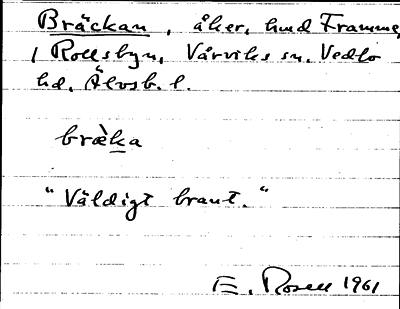 Bräckan, åker, hmd Framme
i Rollsbyn, Vårviks sn. Vedbo
hd, Älvsb. l.
bræ̀ka
"Väldigt brant."
E. Rosell 1961